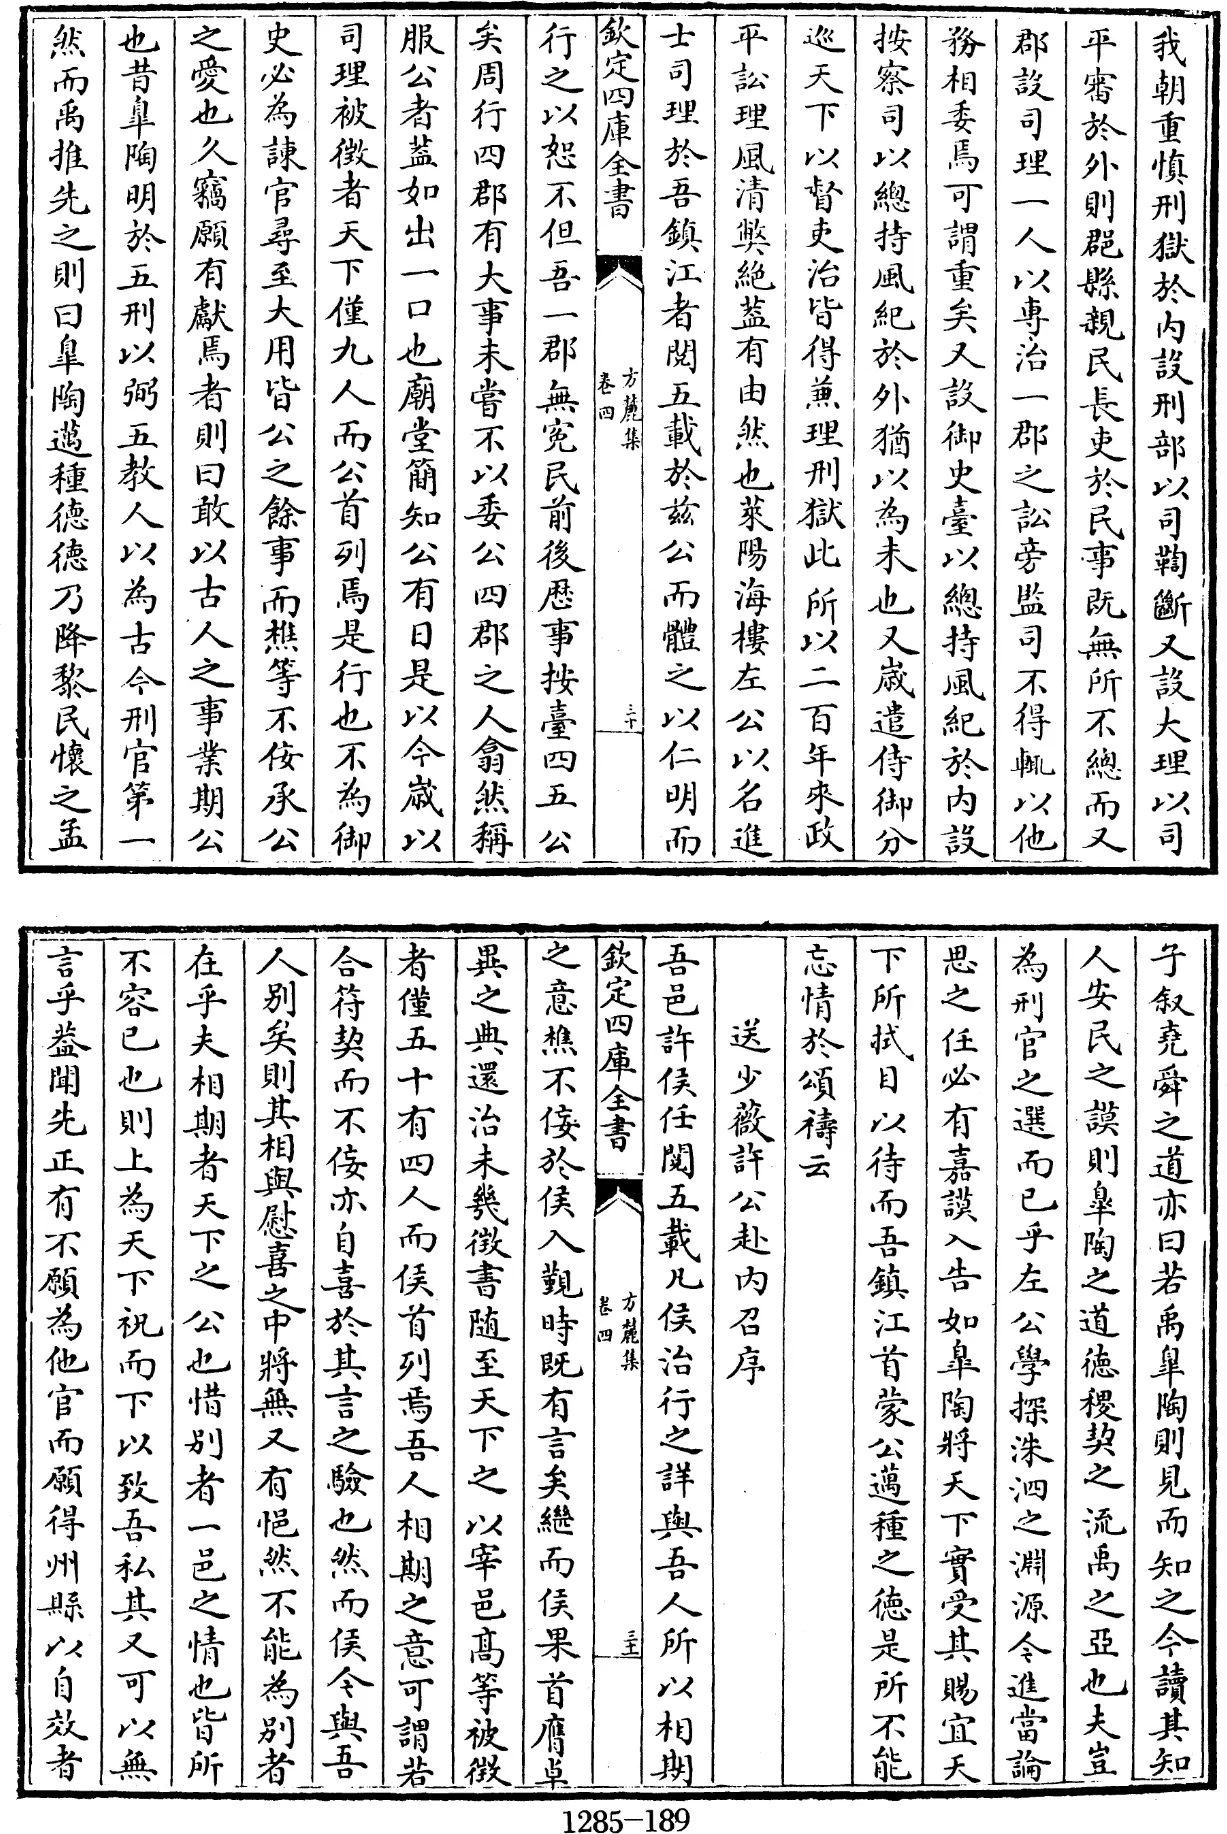 我朝重慎刑獄於内設刑部以司鞫斷又設大理以司
平審於外則郡縣親民長吏於民事既無所不總而又
郡設司理一人以專治一郡之訟旁監司不得輒以他
務相委焉可謂重矣又設御史臺以總持風紀於内設
按察司以總持風紀於外猶以為未也又歲遣侍御分
廵天下以督吏治皆得兼理刑獄此所以二百年來政
平訟理風清獘絶葢有由然也萊陽海樓左公以名進
士司理於吾鎮江者閱五載於兹公而體之以仁明而
欽定四庫全書
方麓集
卷四
三十
行之以恕不但吾一郡無寃民前後歴事按臺四五公
矣周行四郡有大事未嘗不以委公四郡之人翕然稱
服公者葢如出一口也廟堂簡知公有日是以今歲以
司理被徵者天下僅九人而公首列焉是行也不為御
史必為諫官尋至大用皆公之餘事而樵等不佞承公
之愛也久竊願有獻焉者則曰敢以古人之事業期公
也昔臯陶明於五刑以弼五教人以為古今刑官第一
然而禹推先之則曰臯陶邁種徳徳乃降黎民懷之孟
子叙堯舜之道亦曰若禹臯陶則見而知之今讀其知
人安民之謨則臯陶之道徳稷契之流禹之亞也夫豈
為刑官之選而已乎左公學探洙泗之淵源今進當論
思之任必有嘉謨入告如臯陶將天下實受其賜宜天
下所拭目以待而吾鎮江首蒙公邁種之徳是所不能
忘情於頌禱云
送少薇許公赴内召序
吾邑許侯任閱五載凡侯治行之詳與吾人所以相期
欽定四庫全書
方麓集
卷四
三十一
之意樵不佞於侯入覲時既有言矣繼而侯果首膺卓
異之典還治未幾徵書随至天下之以宰邑高等被徵
者僅五十有四人而侯首列焉吾人相期之意可謂若
合符契而不佞亦自喜於其言之驗也然而侯今與吾
人別矣則其相與慰喜之中將無又有悒然不能為別者
在乎夫相期者天下之公也惜別者一邑之情也皆所
不容已也則上為天下祝而下以致吾私其又可以無
言乎葢聞先正有不願為他官而願得州縣以自效者
1285-189